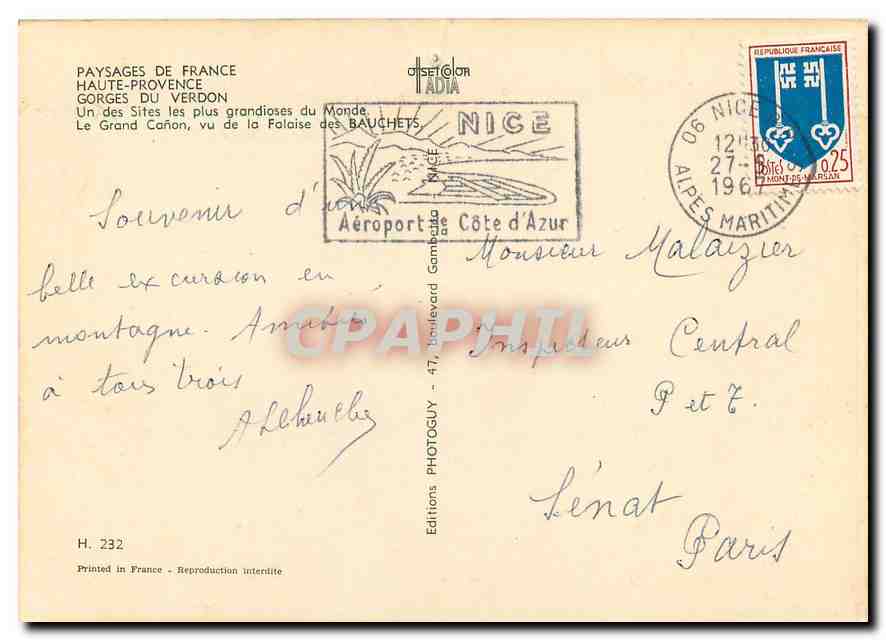 PAYSAGES DE FRANCE
HAUTE-PROVENCE
GORGES DU VERDON
Un des Sites les plus grandioses du Monde.
Le Grand Cañon, vu de la Falaise des BAUCHETS.
OffSetColor
ADIA
NICE
Aéroport de la Côte d'Azur
06 NICE
12H30
27-
1967
ALPES MARITIMES
REPUBLIQUE FRANÇAISE
POSTES 0,25
MONT-DE-MARSAN
Souvenir d'une
belle excursion en
montagne. Amitiés
à tous trois
Monsieur Malaizier
Inspecteur Central
P et T.
Sénat
Paris
Editions PHOTOGUY - 47, Boulevard Gambetta NICE
CPAPHIL
H. 232
Printed in France - Reproduction interdite